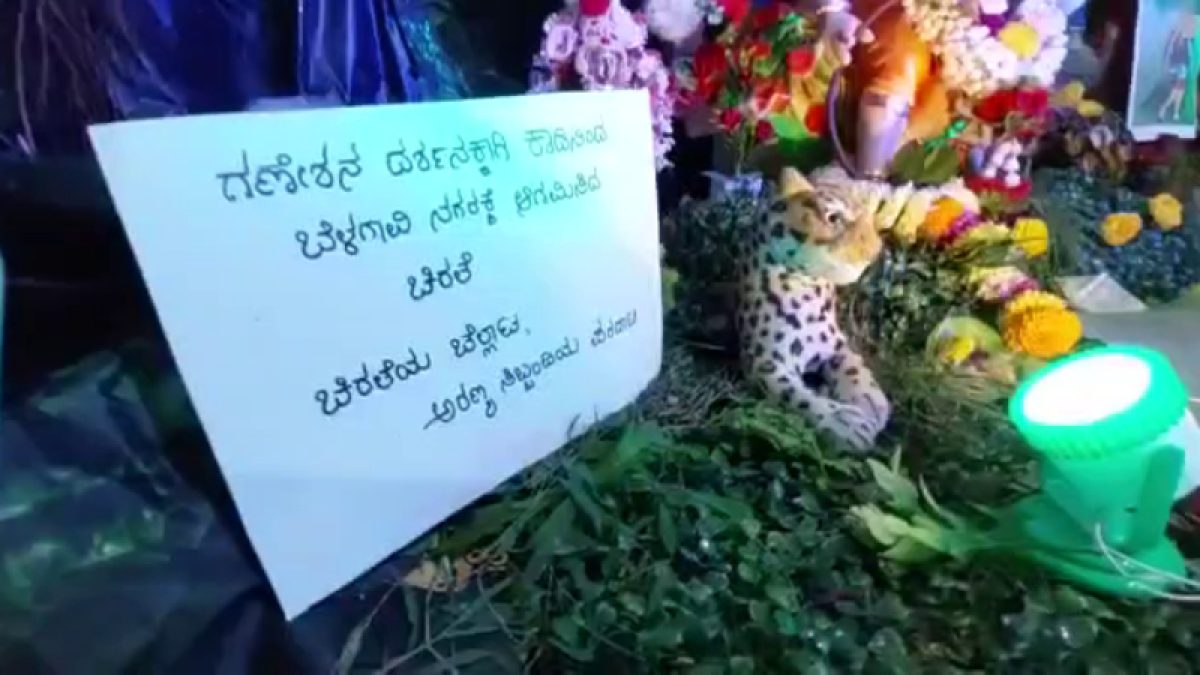 ಗಣೇಶನ ದರ್ಶನಕ್ಕಾಗಿ ಕಾಡಿನಿಂದ
ಬೆಳಗಾವಿ ನಗರಕ್ಕೆ ಆಗಮಿಸಿದ
ಚಿರತೆ
ಚಿರತೆಯ ಚೆಲ್ಲಾಟ,
ಅರಣ್ಯ ಸಿಬ್ಬಂದಿಯ ಪರದಾಟ